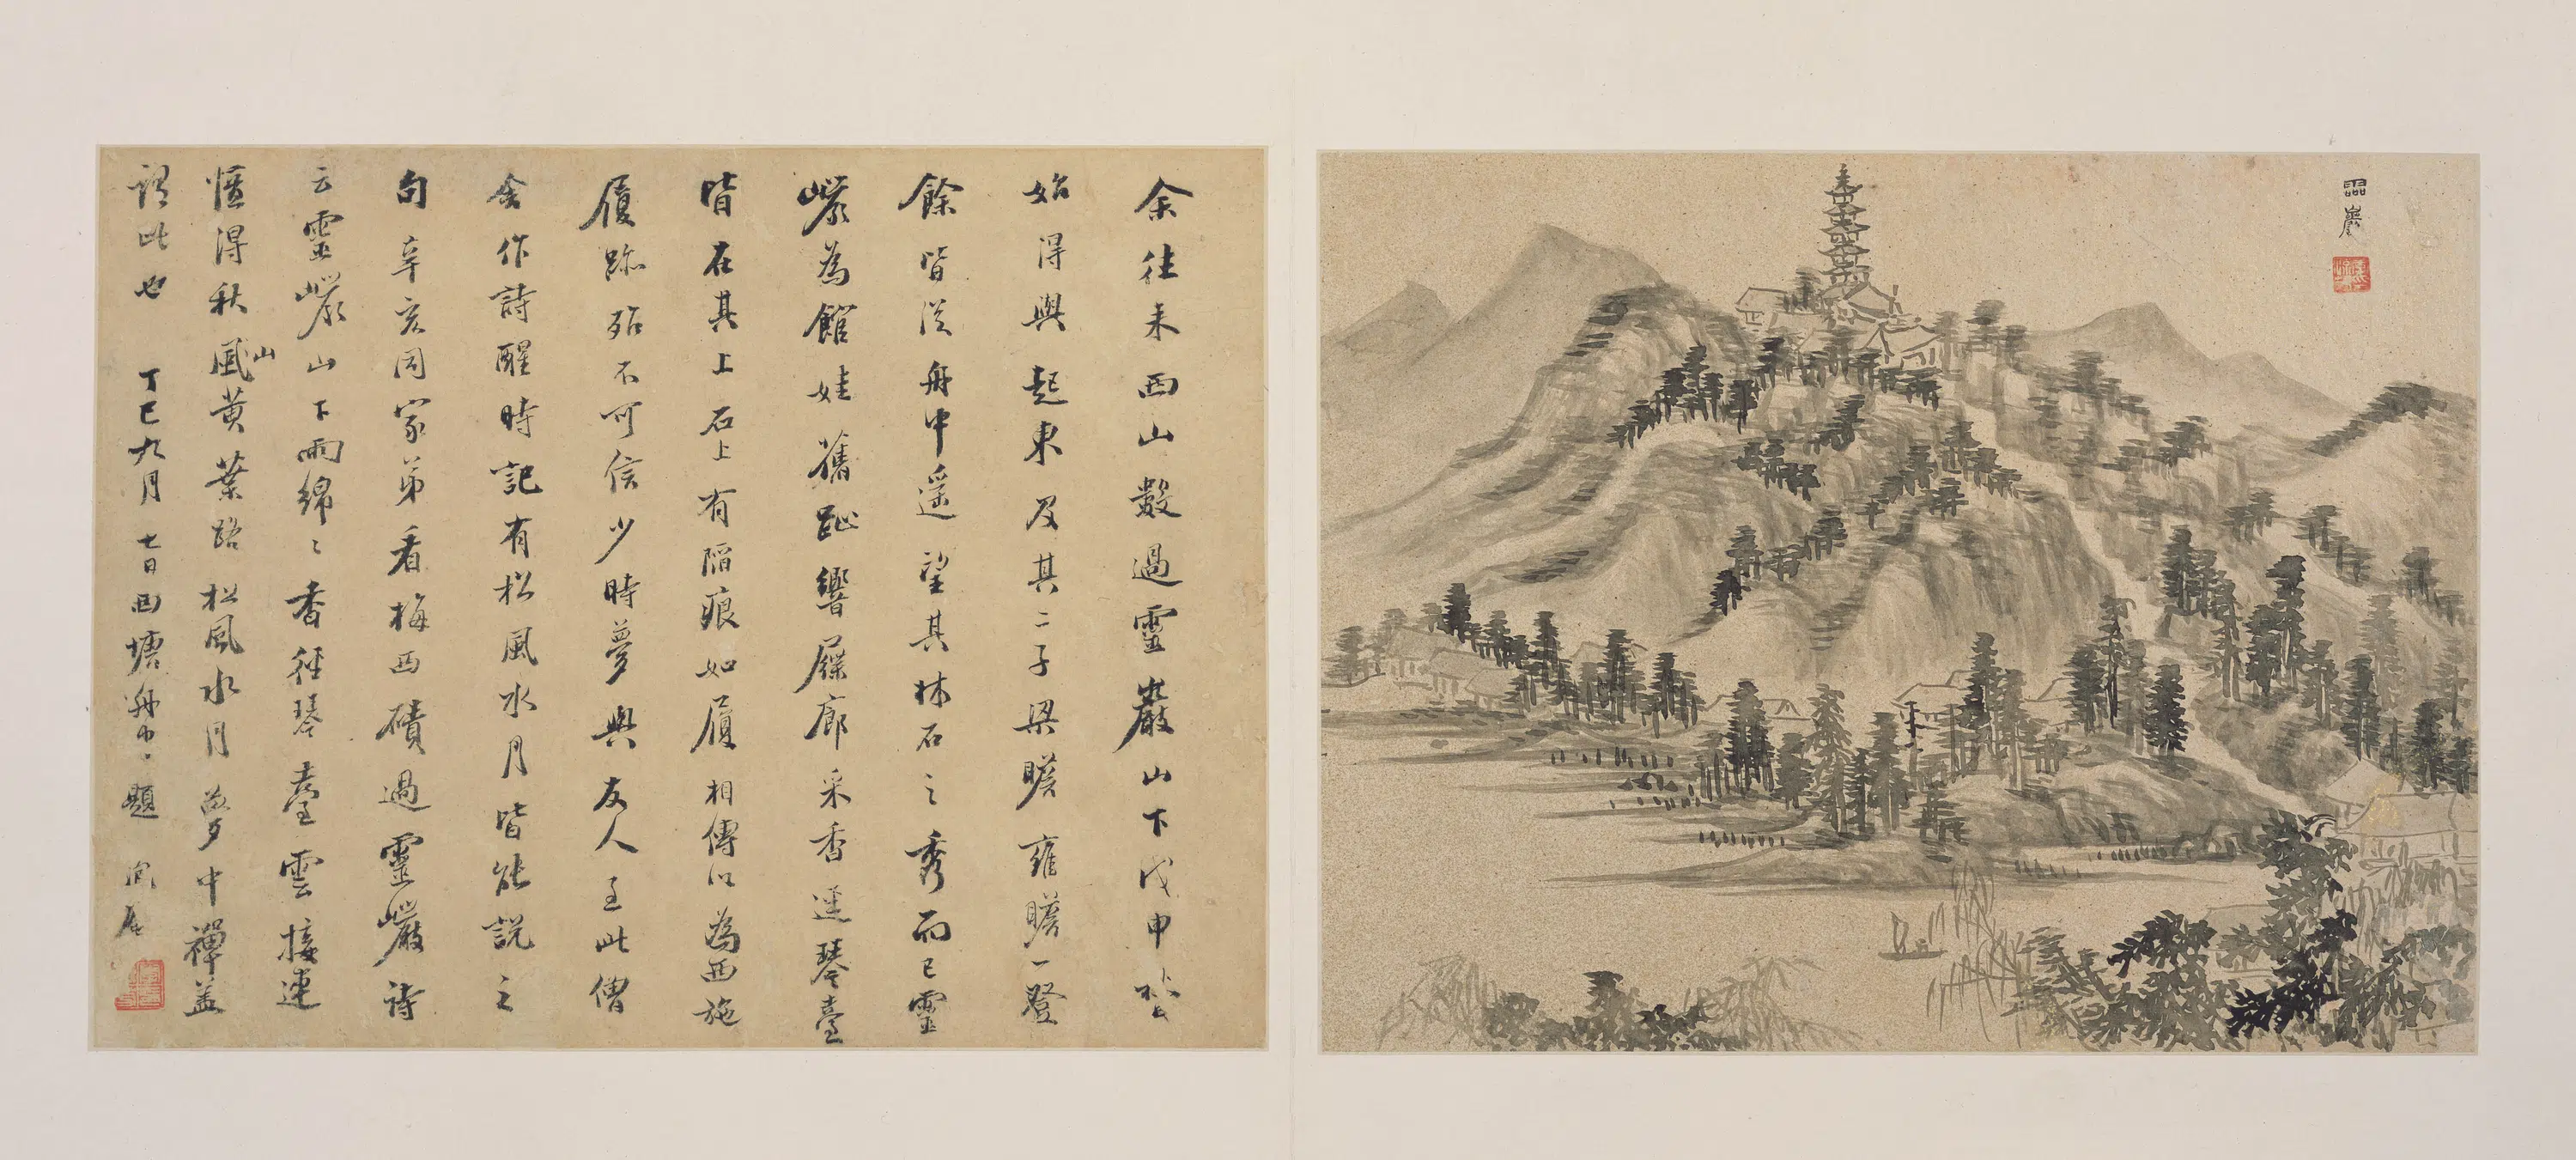 靈巖
余往来西山數過靈巖山下戊申秋
始得與起東及其二子梁瞻雍瞻一登
餘皆從舟中遥望其林石之秀而已靈
巖為館娃舊趾響屧廊采香逕琴臺
皆在其上石上有陷痕如屨相傳以為西施
履跡殆不可信少時夢與友人至此僧
舍作詩醒時記有松風水月皆能說之
句辛亥同家弟看梅西磧過靈巖詩
云靈巖山下雨綿〻香徑琴臺雲接連
恠得秋山風黄葉路松風水月夢中禪蓋
謂此也 丁巳九月七日西塘舟中題